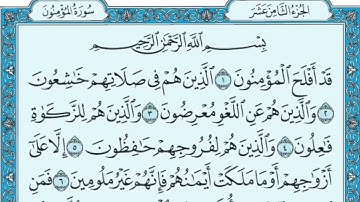 سُورَةُ المُؤْمِنُونَ
الجُزْءُ الثَّامِنَ عَشَرَ
بِسْمِ اللَّهِ الرَّحْمَٰنِ الرَّحِيمِ
قَدْ أَفْلَحَ الْمُؤْمِنُونَ ١ الَّذِينَ هُمْ فِي صَلَاتِهِمْ خَٰشِعُونَ
٢ وَالَّذِينَ هُمْ عَنِ اللَّغْوِ مُعْرِضُونَ ٣ وَالَّذِينَ هُمْ لِلزَّكَوٰةِ
فَٰعِلُونَ ٤ وَالَّذِينَ هُمْ لِفُرُوجِهِمْ حَٰفِظُونَ ٥ إِلَّا عَلَىٰٓ
أَزْوَٰجِهِمْ أَوْ مَا مَلَكَتْ أَيْمَٰنُهُمْ فَإِنَّهُمْ غَيْرُ مَلُومِينَ ٦ فَمَنِ